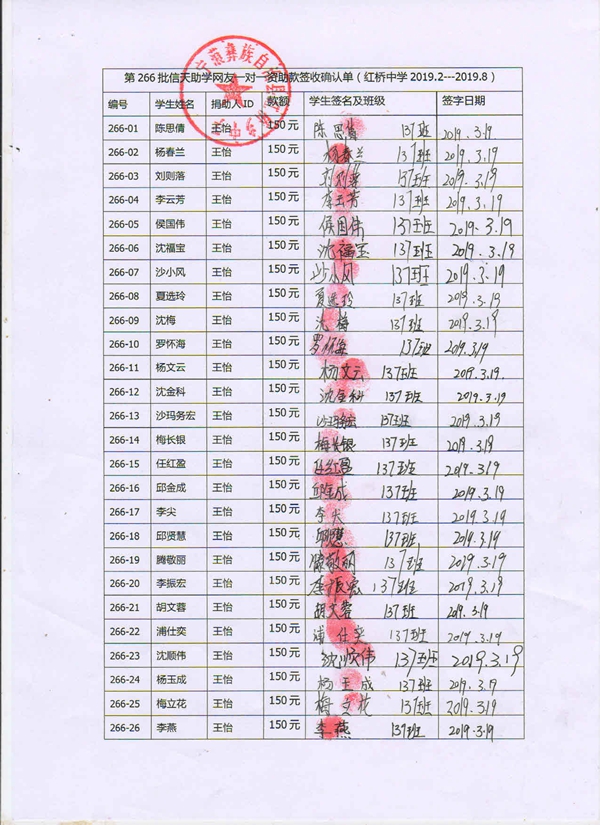 第 266 批信天助学网友一对一资助款签收确认单（红桥中学 2019.2---2019.8）
编号 学生姓名 捐助人 ID 款额 学生签名及班级 签字日期
266-01 陈思倩 王怡 150 元 陈思倩 137班 2019.3.19
266-02 杨春兰 王怡 150 元 杨春兰 137班 2019.3.19
266-03 刘则落 王怡 150 元 刘则落 137班 2019.3.19
266-04 李云芳 王怡 150 元 李云芳 137班 2019.3.19
266-05 侯国伟 王怡 150 元 侯国伟 137班 2019.3.19
266-06 沈福宝 王怡 150 元 沈福宝 137班 2019.3.19
266-07 沙小风 王怡 150 元 沙小风 137班 2019.3.19
266-08 夏选玲 王怡 150 元 夏选玲 137班 2019.3.19
266-09 沈梅 王怡 150 元 沈梅 137班 2019.3.19
266-10 罗怀海 王怡 150 元 罗怀海 137班 2019.3.19
266-11 杨文云 王怡 150 元 杨文云 137班 2019.3.19.
266-12 沈金科 王怡 150 元 沈金科 137班 2019.3.19
266-13 沙玛务宏 王怡 150 元 137班 2019.3.19
266-14 梅长银 王怡 150 元 梅长银 137班 2019.3.19
266-15 任红盈 王怡 150 元 任红盈 137班 2019.3.19
266-16 邱金成 王怡 150 元 邱金成 137班 2019.3.19
266-17 李尖 王怡 150 元 李尖 137班 2019.3.19
266-18 邱贤慧 王怡 150 元 137班 2019.3.19
266-19 腾敬丽 王怡 150 元 腾敬丽 137班 2019.3.19
266-20 李振宏 王怡 150 元 李振宏 137班 2019.3.19
266-21 胡文蓉 王怡 150 元 胡文蓉 137班 2019.3.19
266-22 浦仕奕 王怡 150 元 浦仕奕 137班 2019.3.19
266-23 沈顺伟 王怡 150 元 沈顺伟 137班 2019.3.19
266-24 杨玉成 王怡 150 元 杨玉成 137班 2019.3.19
266-25 梅立花 王怡 150 元 梅立花 137班 2019.3.19
266-26 李燕 王怡 150 元 李燕 137班 2019.3.19